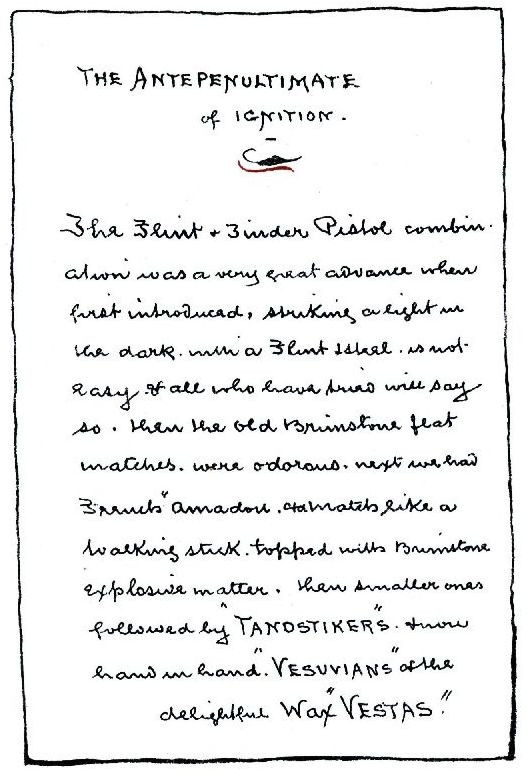 THE ANTEPENULTIMATE
of IGNITION.
The Flint + Tinder Pistol combin-
ation was a very great advance when
first introduced, striking a light in
the dark. with a Flint & Steel. is not
easy & all who have tried will say
so. then the old Brimstone flat
matches. were odorous. next we had
French "Amadou. a match like a
walking stick. topped with Brimstone
explosive matter. then smaller ones
followed by "TANDSTIKERS". & now
hand in hand. "VESUVIANS" & the
delightful Wax "VESTAS."